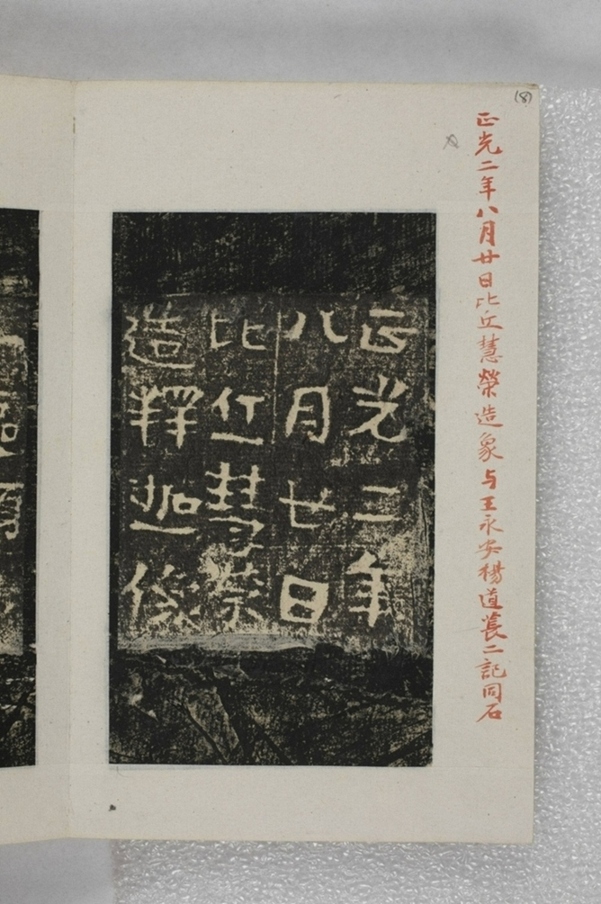 (8)
正光二年八月廿日比丘慧榮造象与王永安楊道萇二記同石
正光二年
八月廿日
比丘慧榮
造釋迦像